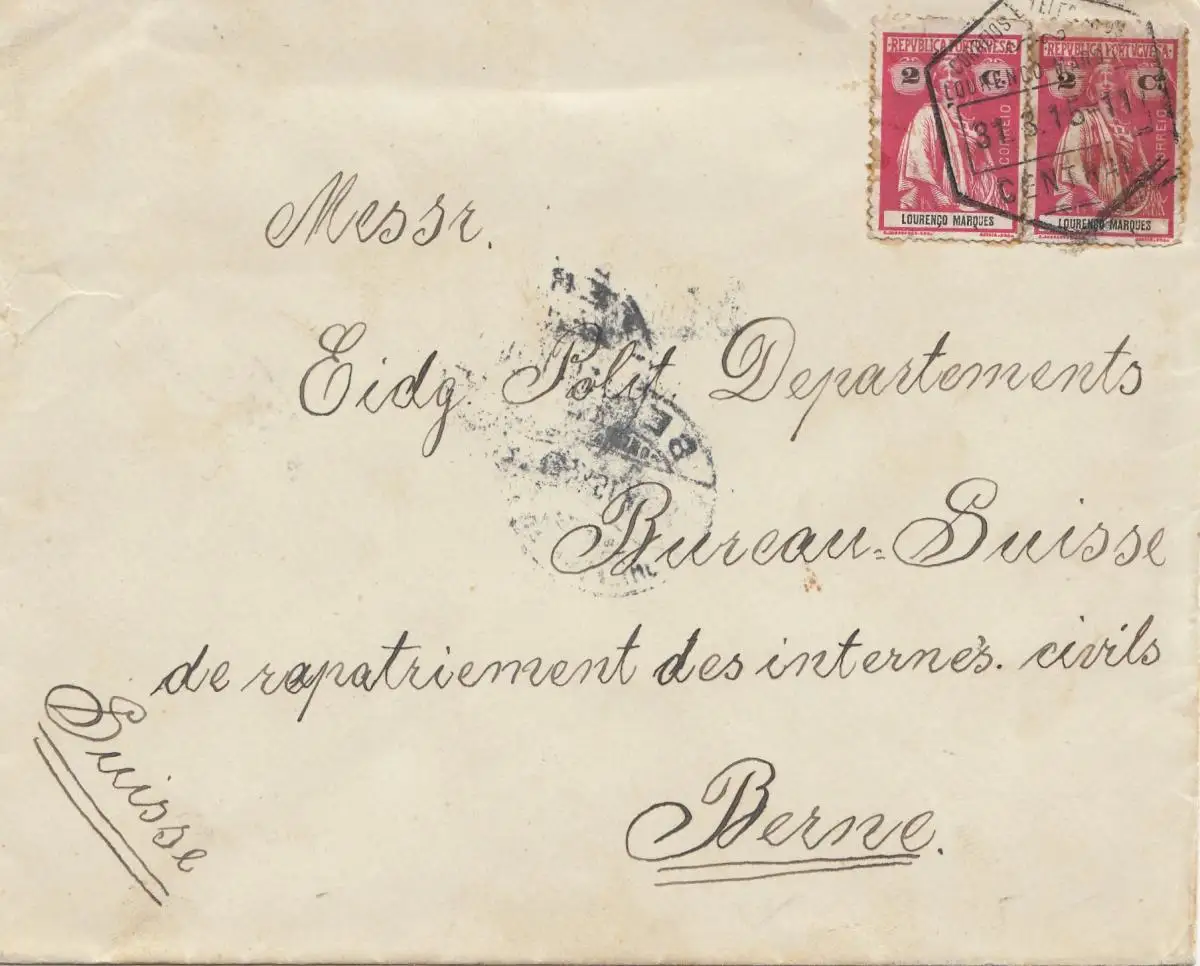 REPVBLICA PORTUGUESA
2 C.
CORREIO
LOURENÇO MARQUES
REPVBLICA PORTUGUESA
2 C.
CORREIO
LOURENÇO MARQUES
CORREIOS E
LOURENÇO
31.3.15-11
CENTRAL
Messr.
Eidg. Polit. Departements
Bureau=Suisse
de rapatriement des internés. civils
Suisse
Berne.